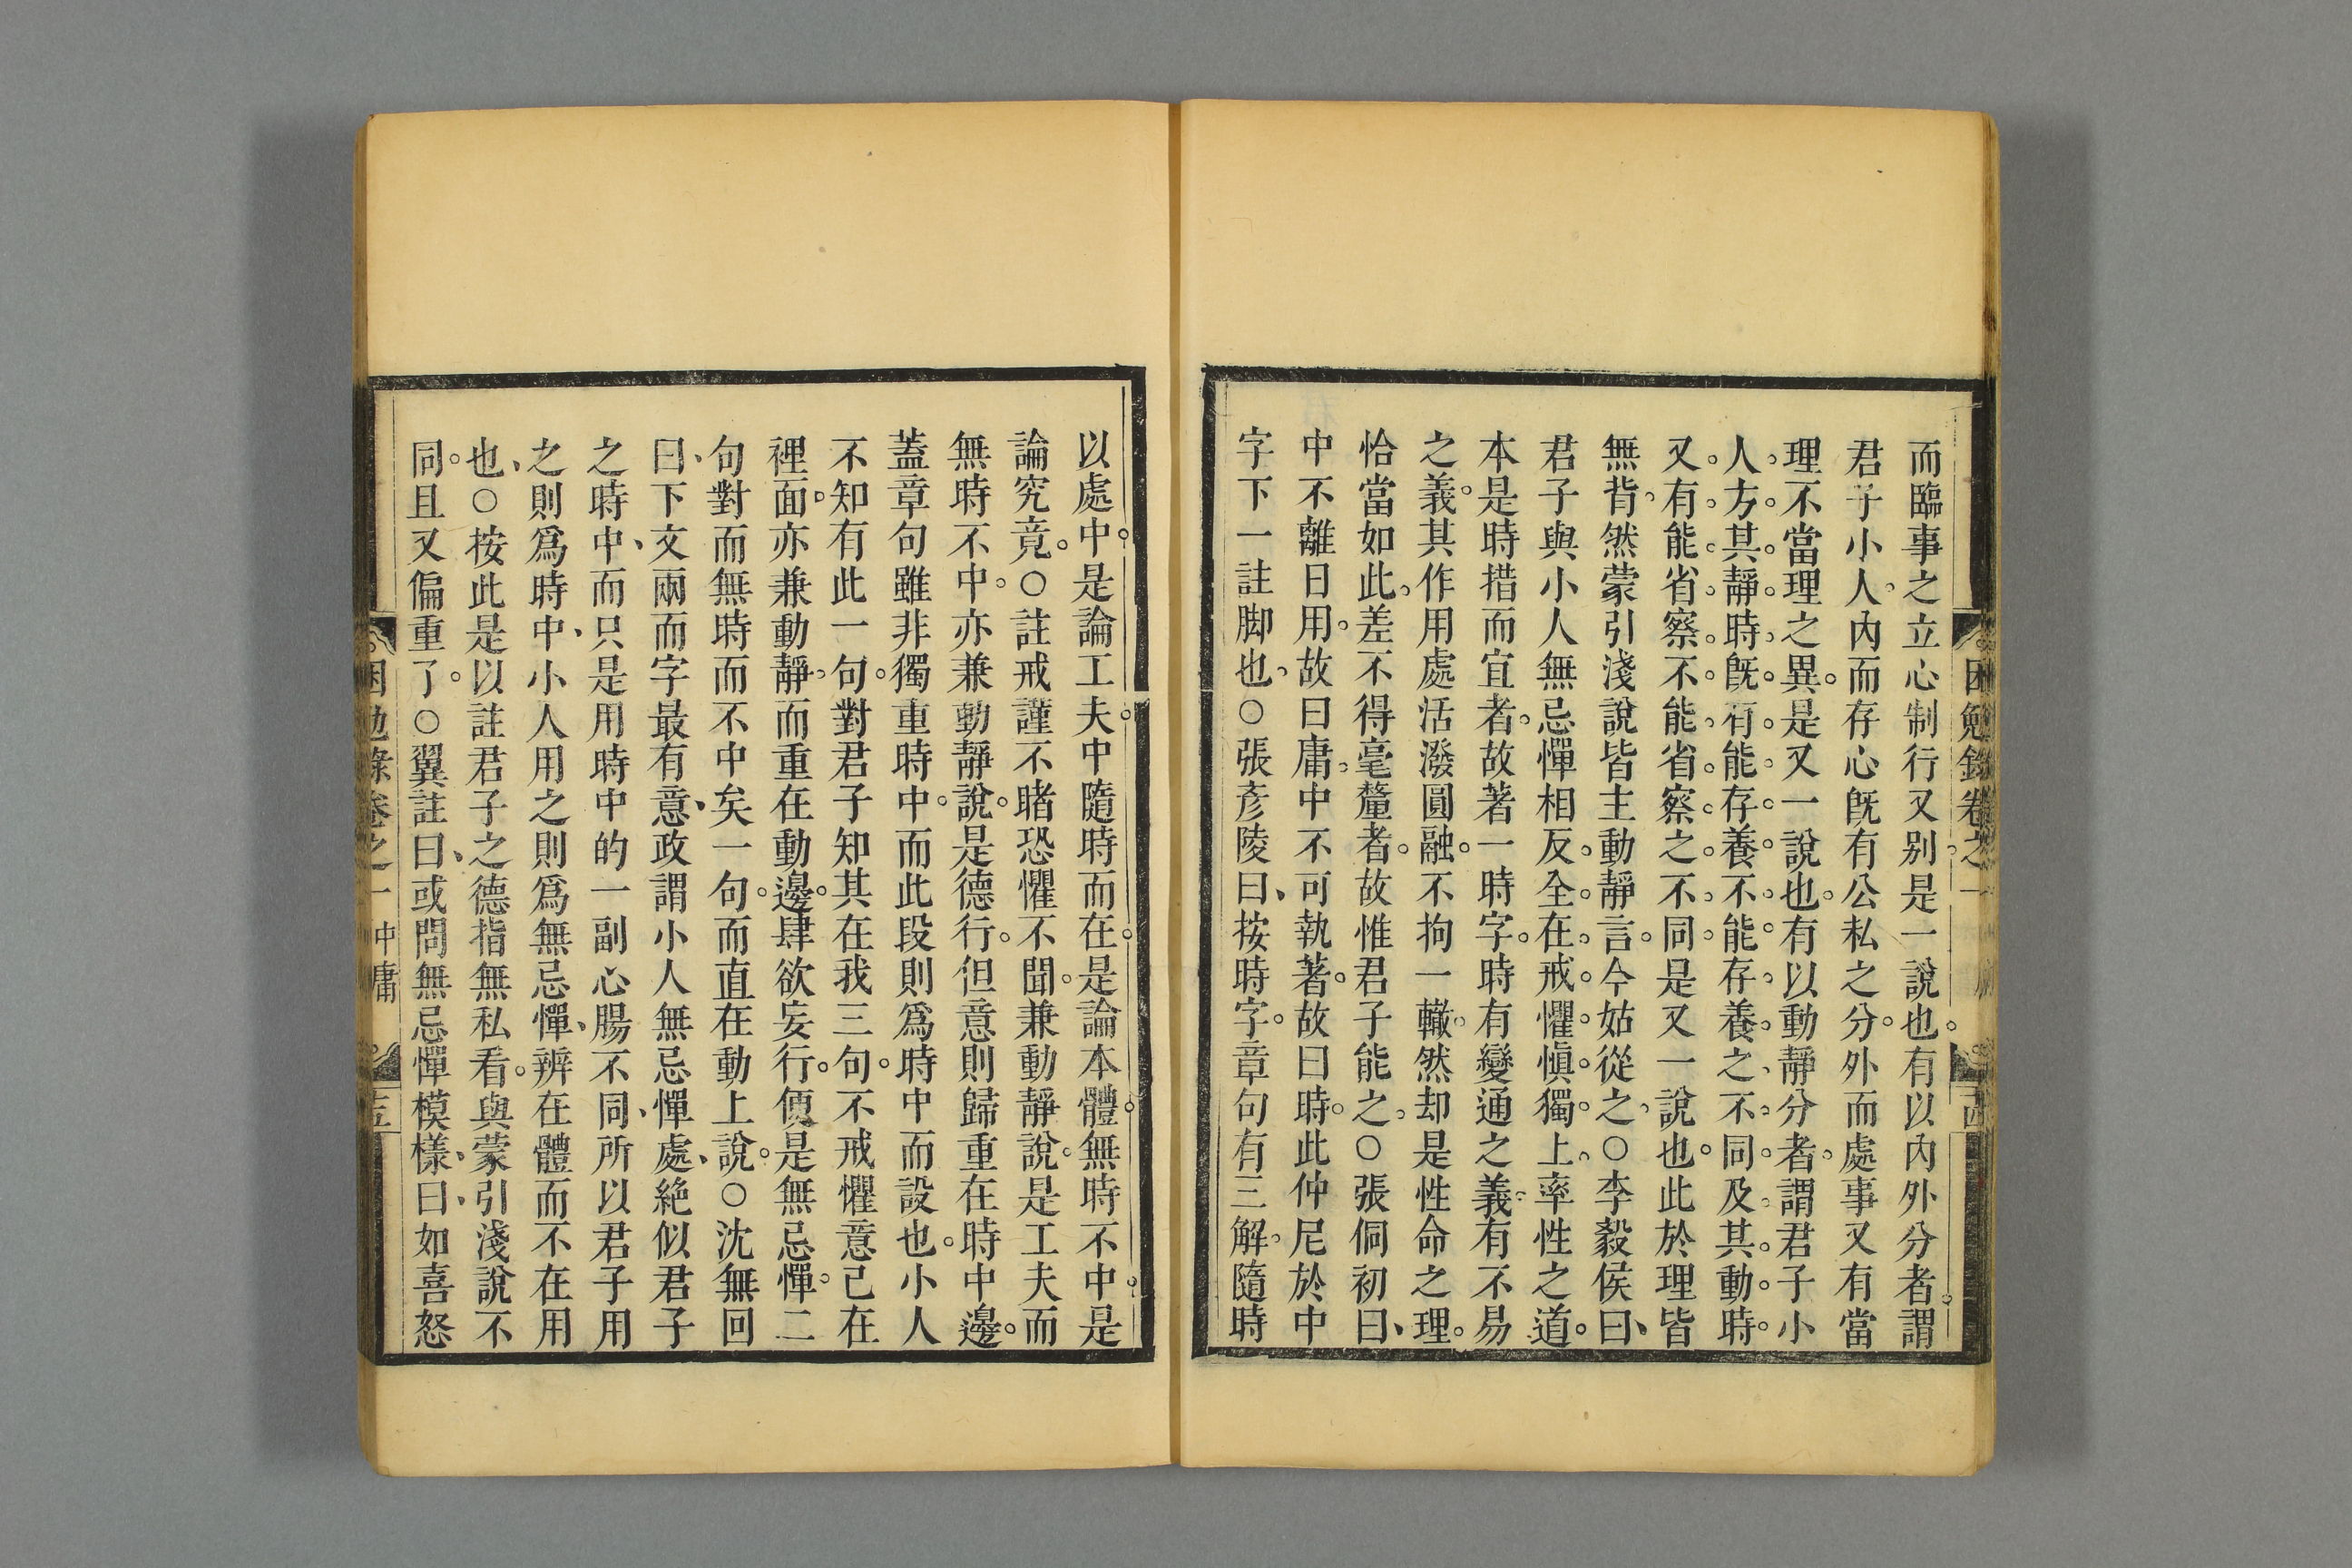 困勉錄卷之一
而臨事之立心制行又别是一說也有以內外分者謂
君子小人內而存心旣有公私之分外而處事又有當
理不當理之異是又一說也有以動靜分者謂君子小
人方其靜時旣有能存養不能存養之不同及其動時
又有能省察不能省察之不同是又一說也此於理皆
無背然蒙引淺說皆主動靜言今姑從之○李毅侯曰
君子與小人無忌憚相反全在戒懼愼獨上率性之道
本是時措而宜者故著一時字時有變通之義有不易
之義其作用處活潑圓融不拘一轍然却是性命之理
恰當如此差不得毫釐者故惟君子能之○張侗初曰
中不離日用故曰庸中不可執著故曰時此仲尼於中
字下一註脚也○張彥陵曰按時字章句有三解隨時
以處中是論工夫中隨時而在是論本體無時不中是
論究竟○註戒謹不睹恐懼不聞兼動靜說是工夫而
無時不中亦兼動靜說是德行但意則歸重在時中邊
蓋章句雖非獨重時中而此段則爲時中而設也小人
不知有此一句對君子知其在我三句不戒懼意已在
裡面亦兼動靜而重在動邊肆欲妄行便是無忌憚二
句對而無時而不中矣一句而直在動上說○沈無回
曰下文兩而字最有意政謂小人無忌憚處絶似君子
之時中而只是用時中的一副心腸不同所以君子用
之則爲時中小人用之則爲無忌憚辨在體而不在用
也○按此是以註君子之德指無私看與蒙引淺說不
同且又偏重了○翼註曰或問無忌憚模樣曰如喜怒
困勉錄卷之一 中庸